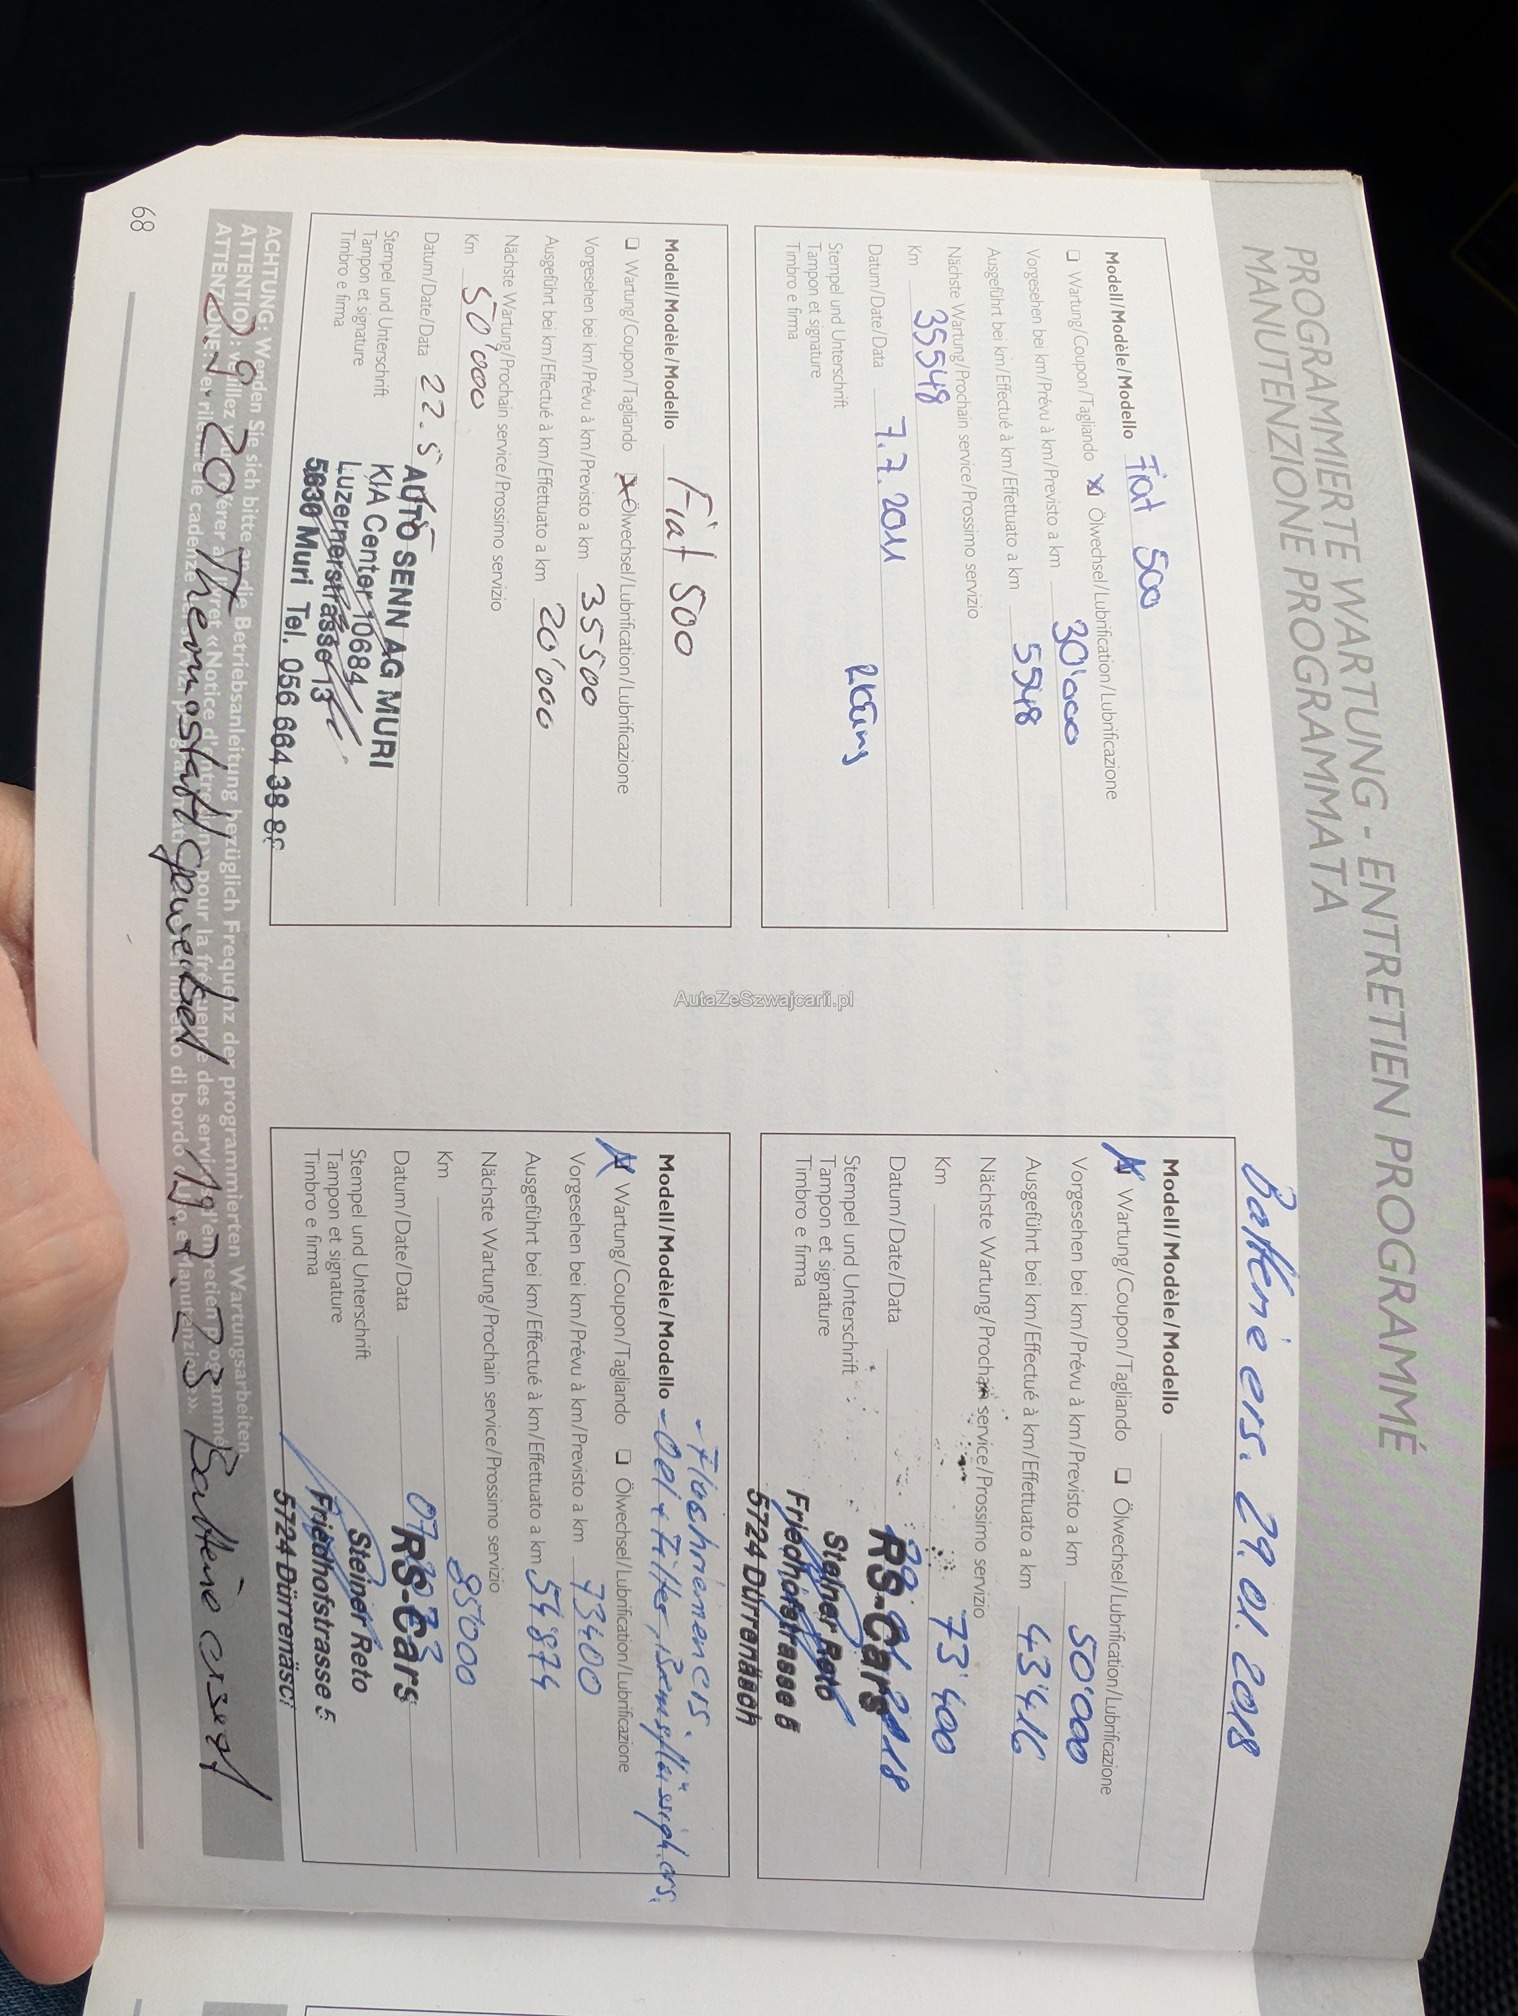 PROGRAMMIERTE WARTUNG - ENTRETIEN PROGRAMMÉ
MANUTENZIONE PROGRAMMATA
Modell/Modèle/Modello Fiat 500
❑ Wartung/Coupon/Tagliando ☒ Ölwechsel/Lubrification/Lubrificazione
Vorgesehen bei km/Prévu à km/Previsto a km 30'000
Ausgeführt bei km/Effectué à km/Effettuato a km 5548
Nächste Wartung/Prochain service/Prossimo servizio
Km 35548
Datum/Date/Data 7.7.2011
Stempel und Unterschrift
Tampon et signature
Timbro e firma
Batterie ers. 29.01.2018
Modell/Modèle/Modello
☒ Wartung/Coupon/Tagliando ❑ Ölwechsel/Lubrification/Lubrificazione
Vorgesehen bei km/Prévu à km/Previsto a km 50'000
Ausgeführt bei km/Effectué à km/Effettuato a km 43'416
Nächste Wartung/Prochain service/Prossimo servizio
Km 73'400
Datum/Date/Data 2018
Stempel und Unterschrift
Tampon et signature
Timbro e firma
RS-Cars
Steiner Reto
Friedhofstrasse 5
5724 Dürrenäsch
Modell/Modèle/Modello Fiat 500
❑ Wartung/Coupon/Tagliando ☒ Ölwechsel/Lubrification/Lubrificazione
Vorgesehen bei km/Prévu à km/Previsto a km 35500
Ausgeführt bei km/Effectué à km/Effettuato a km 20'000
Nächste Wartung/Prochain service/Prossimo servizio
Km 50'000
Datum/Date/Data 22.5
Stempel und Unterschrift
Tampon et signature
Timbro e firma
AUTO SENN AG MURI
KIA Center 10684
Luzernerstrasse 13
5630 Muri Tel. 056 664 38
- Flachriemen ers.
Modell/Modèle/Modello - Oel + Filter, Bremsflüssigk. ers.
☒ Wartung/Coupon/Tagliando ❑ Ölwechsel/Lubrification/Lubrificazione
Vorgesehen bei km/Prévu à km/Previsto a km 73400
Ausgeführt bei km/Effectué à km/Effettuato a km 54'874
Nächste Wartung/Prochain service/Prossimo servizio
Km 85'000
Datum/Date/Data
Stempel und Unterschrift
Tampon et signature
Timbro e firma
RS-Cars
Steiner Reto
Friedhofstrasse 5
5724 Dürrenäsch
ACHTUNG: Wenden Sie sich bitte an die Betriebsanleitung bezüglich Frequenz der programmierten Wartungsarbeiten.
20 Thermostatt gewechselt 19. 23 Batterie ersetzt
68
AutaZeSzwajcarii.pl